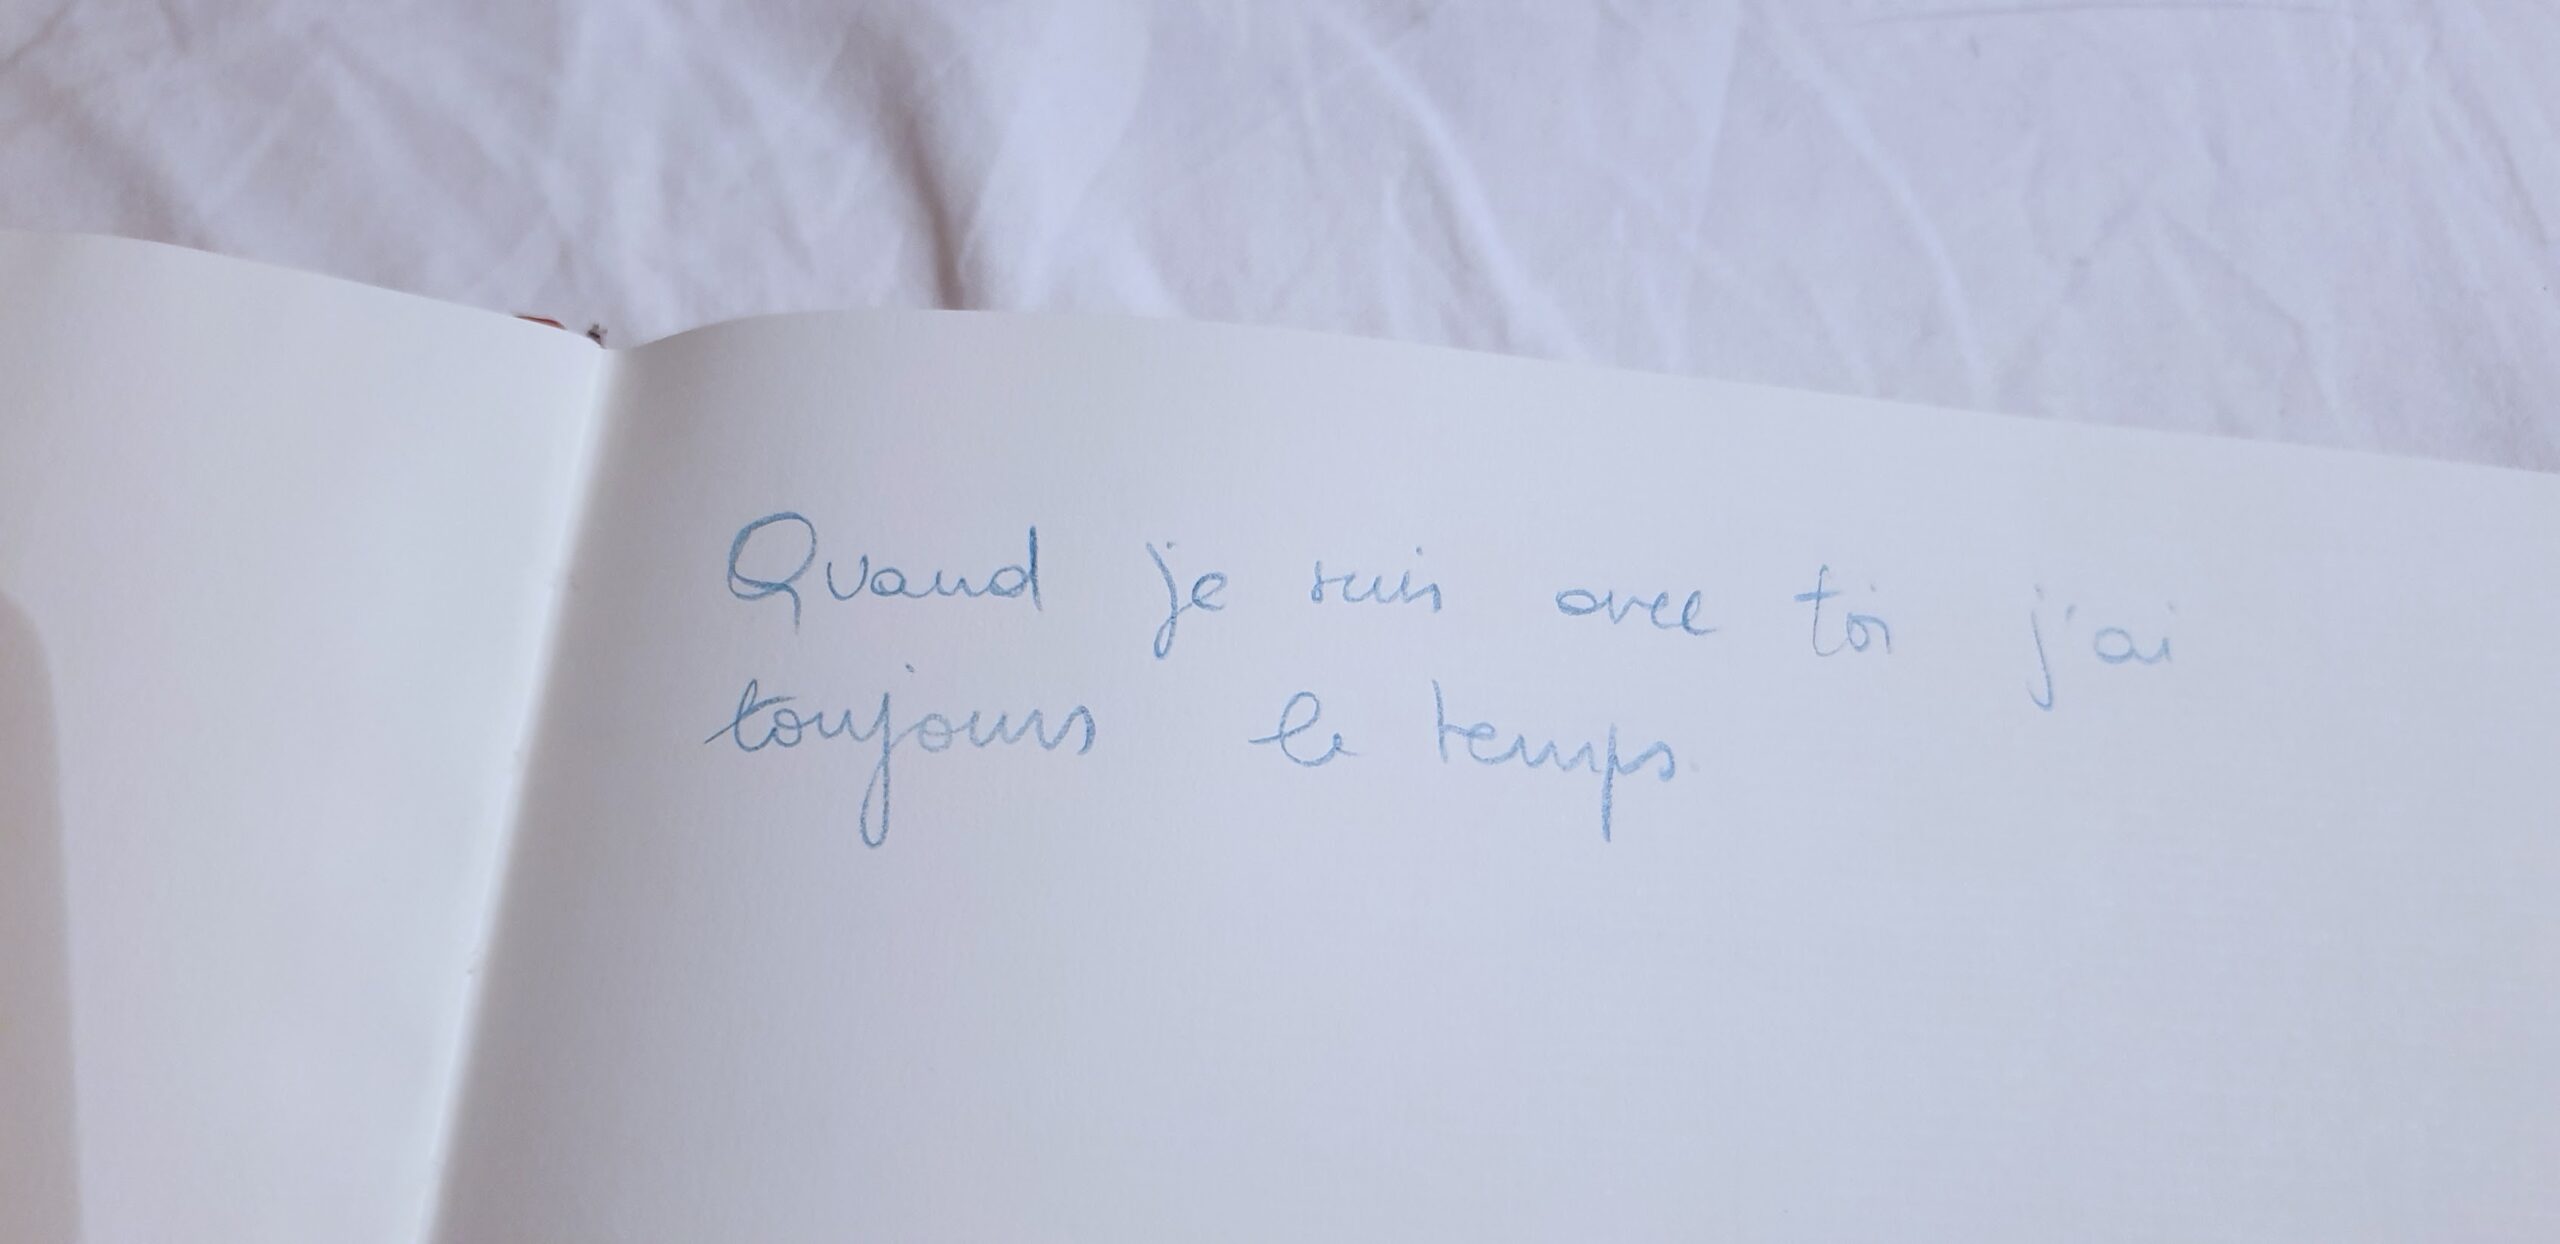 Quand je suis avec toi j'ai
toujours le temps